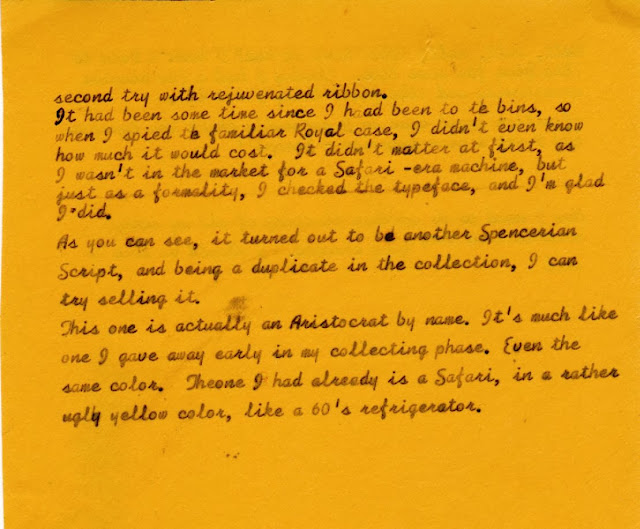 second try with rejuvenated ribbon.
It had been some time since I had been to te bins, so
when I spied te familiar Royal case, I didn't even know
how much it would cost.  It didn't matter at first, as
I wasn't in the market for a Safari -era machine, but
just as a formality, I checked the typeface, and I'm glad
I did.
As you can see, it turned out to be another Spencerian
Script, and being a duplicate in the collection, I can
try selling it.
This one is actually an Aristocrat by name. It's much like
one I gave away early in my collecting phase. Even the
same color.  Theone I had already is a Safari, in a rather
ugly yellow color, like a 60's refrigerator.